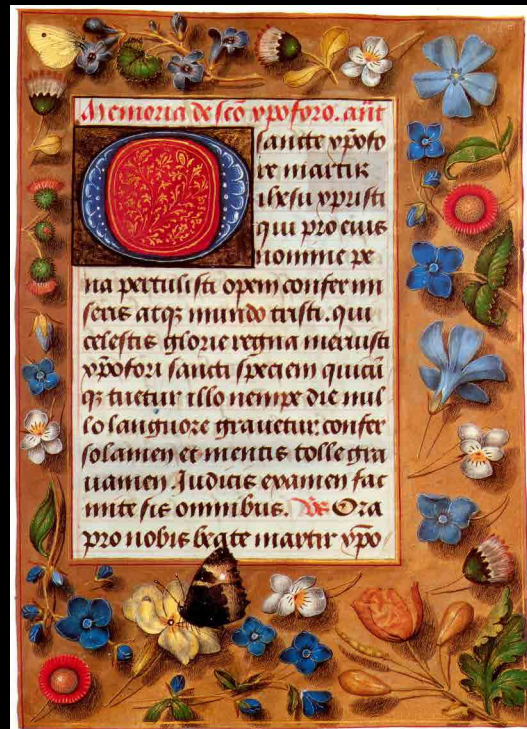 Memoria de sco xpoforo. ant
O sancte xpofo
re martir
ihesu xpristi
qui pro eius
nomine pe
na pertulisti opem confer mi
seris atq; mundo tristi. qui
celestis glorie regna meruisti
xpofori sancti speciem quicu
q; tuetur illo nempe die nul
lo languore grauetur: confer
solamen et mentis tolle gra
uamen Judicis examen fac
mite sis omnibus. Vs Ora
pro nobis beate martir xpo